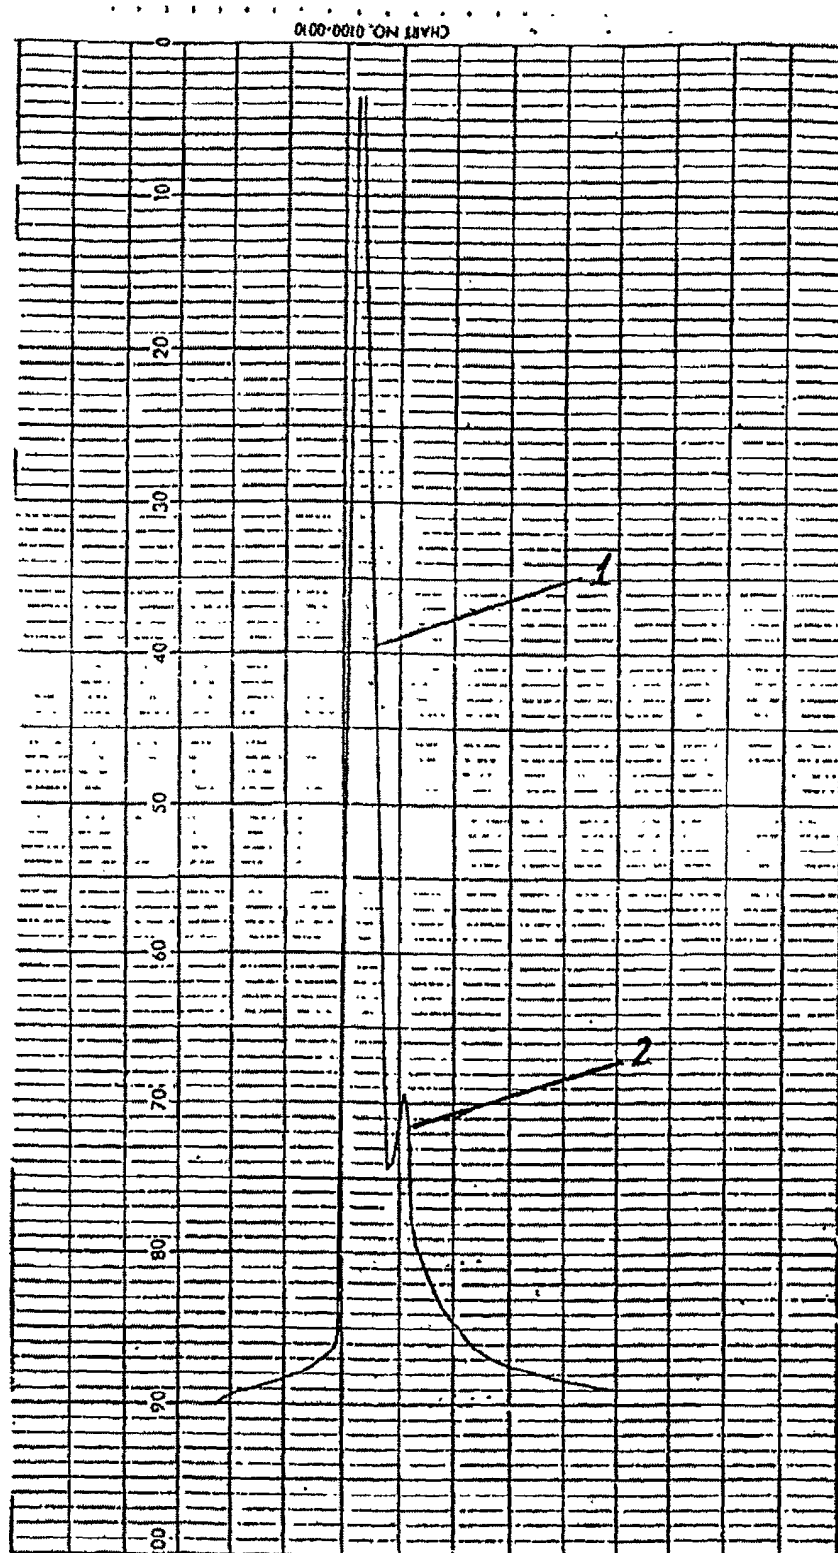 CHART NO. 0100-0010
0
10
20
30
1
40
50
60
2
70
80
90
00